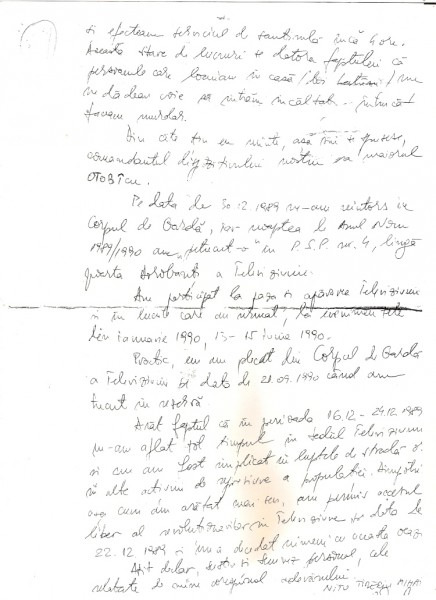 și efectuam serviciul de santinelă încă 4 ore.
Această stare de lucruri se datora faptului că
persoanele care locuiau în casă / doi bătrîni / nu
ne dădeau voie să intrăm încălțați - întrucît
făceam murdar.
Din cîte țin eu minte, așa mi se pare,
comandantul dispozitivului nostru era maiorul
OTOBÎCU.
Pe data de 30.12.1989 ne-am reîntors în
Corpul de Gardă, iar noaptea de Anul Nou
1989/1990 am "petrecut-o" în P.S.P. nr. 4, lîngă
poarta a Televiziunii.
Am participat la paza și apărarea Televiziunii
și în lunile care au urmat, la evenimentele
din ianuarie 1990, 13-15 iunie 1990.
Practic, eu am plecat din Corpul de Gardă
a Televiziunii pe data de 21.09.1990 cînd am
trecut în rezervă
Arăt faptul că în perioada 16.12 - 29.12.1989
m-am aflat tot timpul în sediul Televiziunii
și nu am fost implicat în luptele de stradă
în alte acțiuni de represiune a populației.
așa cum am arătat mai sus, am permis accesul
liber al revoluționarilor în Televiziune pe data de
22.12.1989 și nu a decedat nimeni cu această
Atît declar, susțin și semnez personal, cele
relatate de mine adevărului.
NIȚU MIHAI